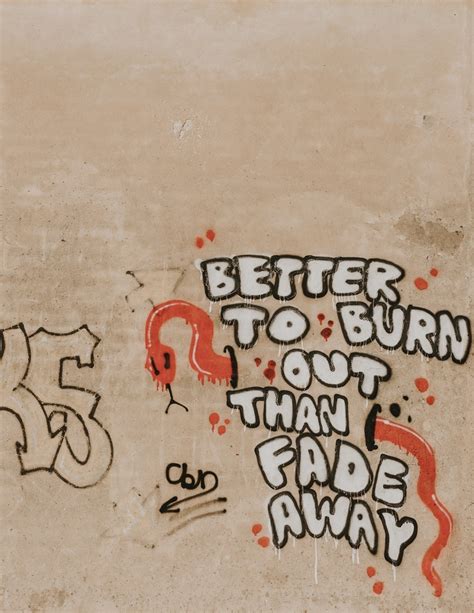 BETTER
TO BURN
OUT
THAN
FADE
AWAY